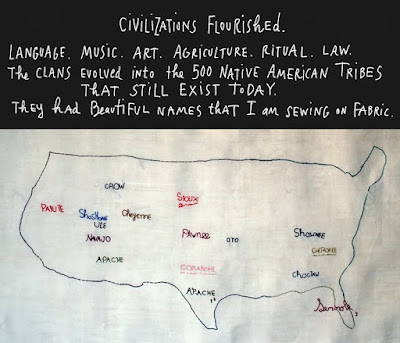 CIVILIZATIONS FLOURISHED.
LANGUAGE. MUSIC. ART. AGRICULTURE. RITUAL. LAW.
THE CLANS EVOLVED INTO THE 500 NATIVE AMERICAN TRIBES
THAT STILL EXIST TODAY.
THEY HAD BEAUTIFUL NAMES THAT I AM SEWING ON FABRIC.
CROW
SIOUX
PAIUTE
Shoshone
Cheyenne
UTE
NAVAJO
Pawnee
OTO
Shawnee
CHEROKEE
APACHE
COMANCHE
CHOCTAW
APACHE
Seminole